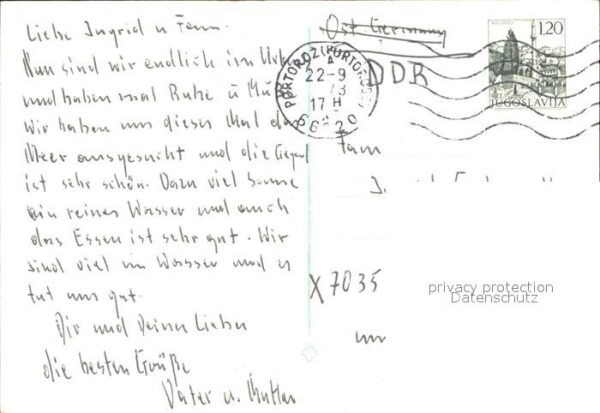 Liebe Ingrid u Fam.
Nun sind wir endlich im
und haben mal Ruhe u
Wir haben uns dieses Mal das
Meer ausgesucht und die Gegend
ist sehr schön. Dazu viel Sonne
ein reines Wasser und auch
das Essen ist sehr gut. Wir
sind viel im Wasser und es
tut uns gut.
Dir und Deinen Lieben
die besten Grüße
Vater u. Mutter
Ost Germany
DDR
PORTOROŽ (PORTOROSE)
A
22-9
73
17 H
66320
1,20
JUGOSLAVIJA
Fam
X 7035
privacy protection
Datenschutz